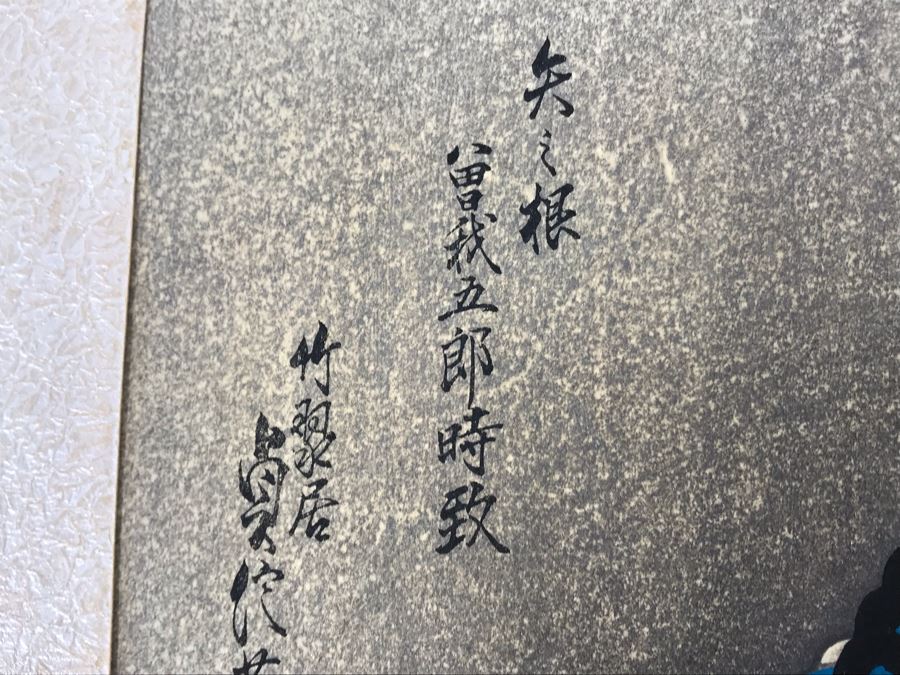 矢之根
曽我五郎時致
竹翠居
貞信